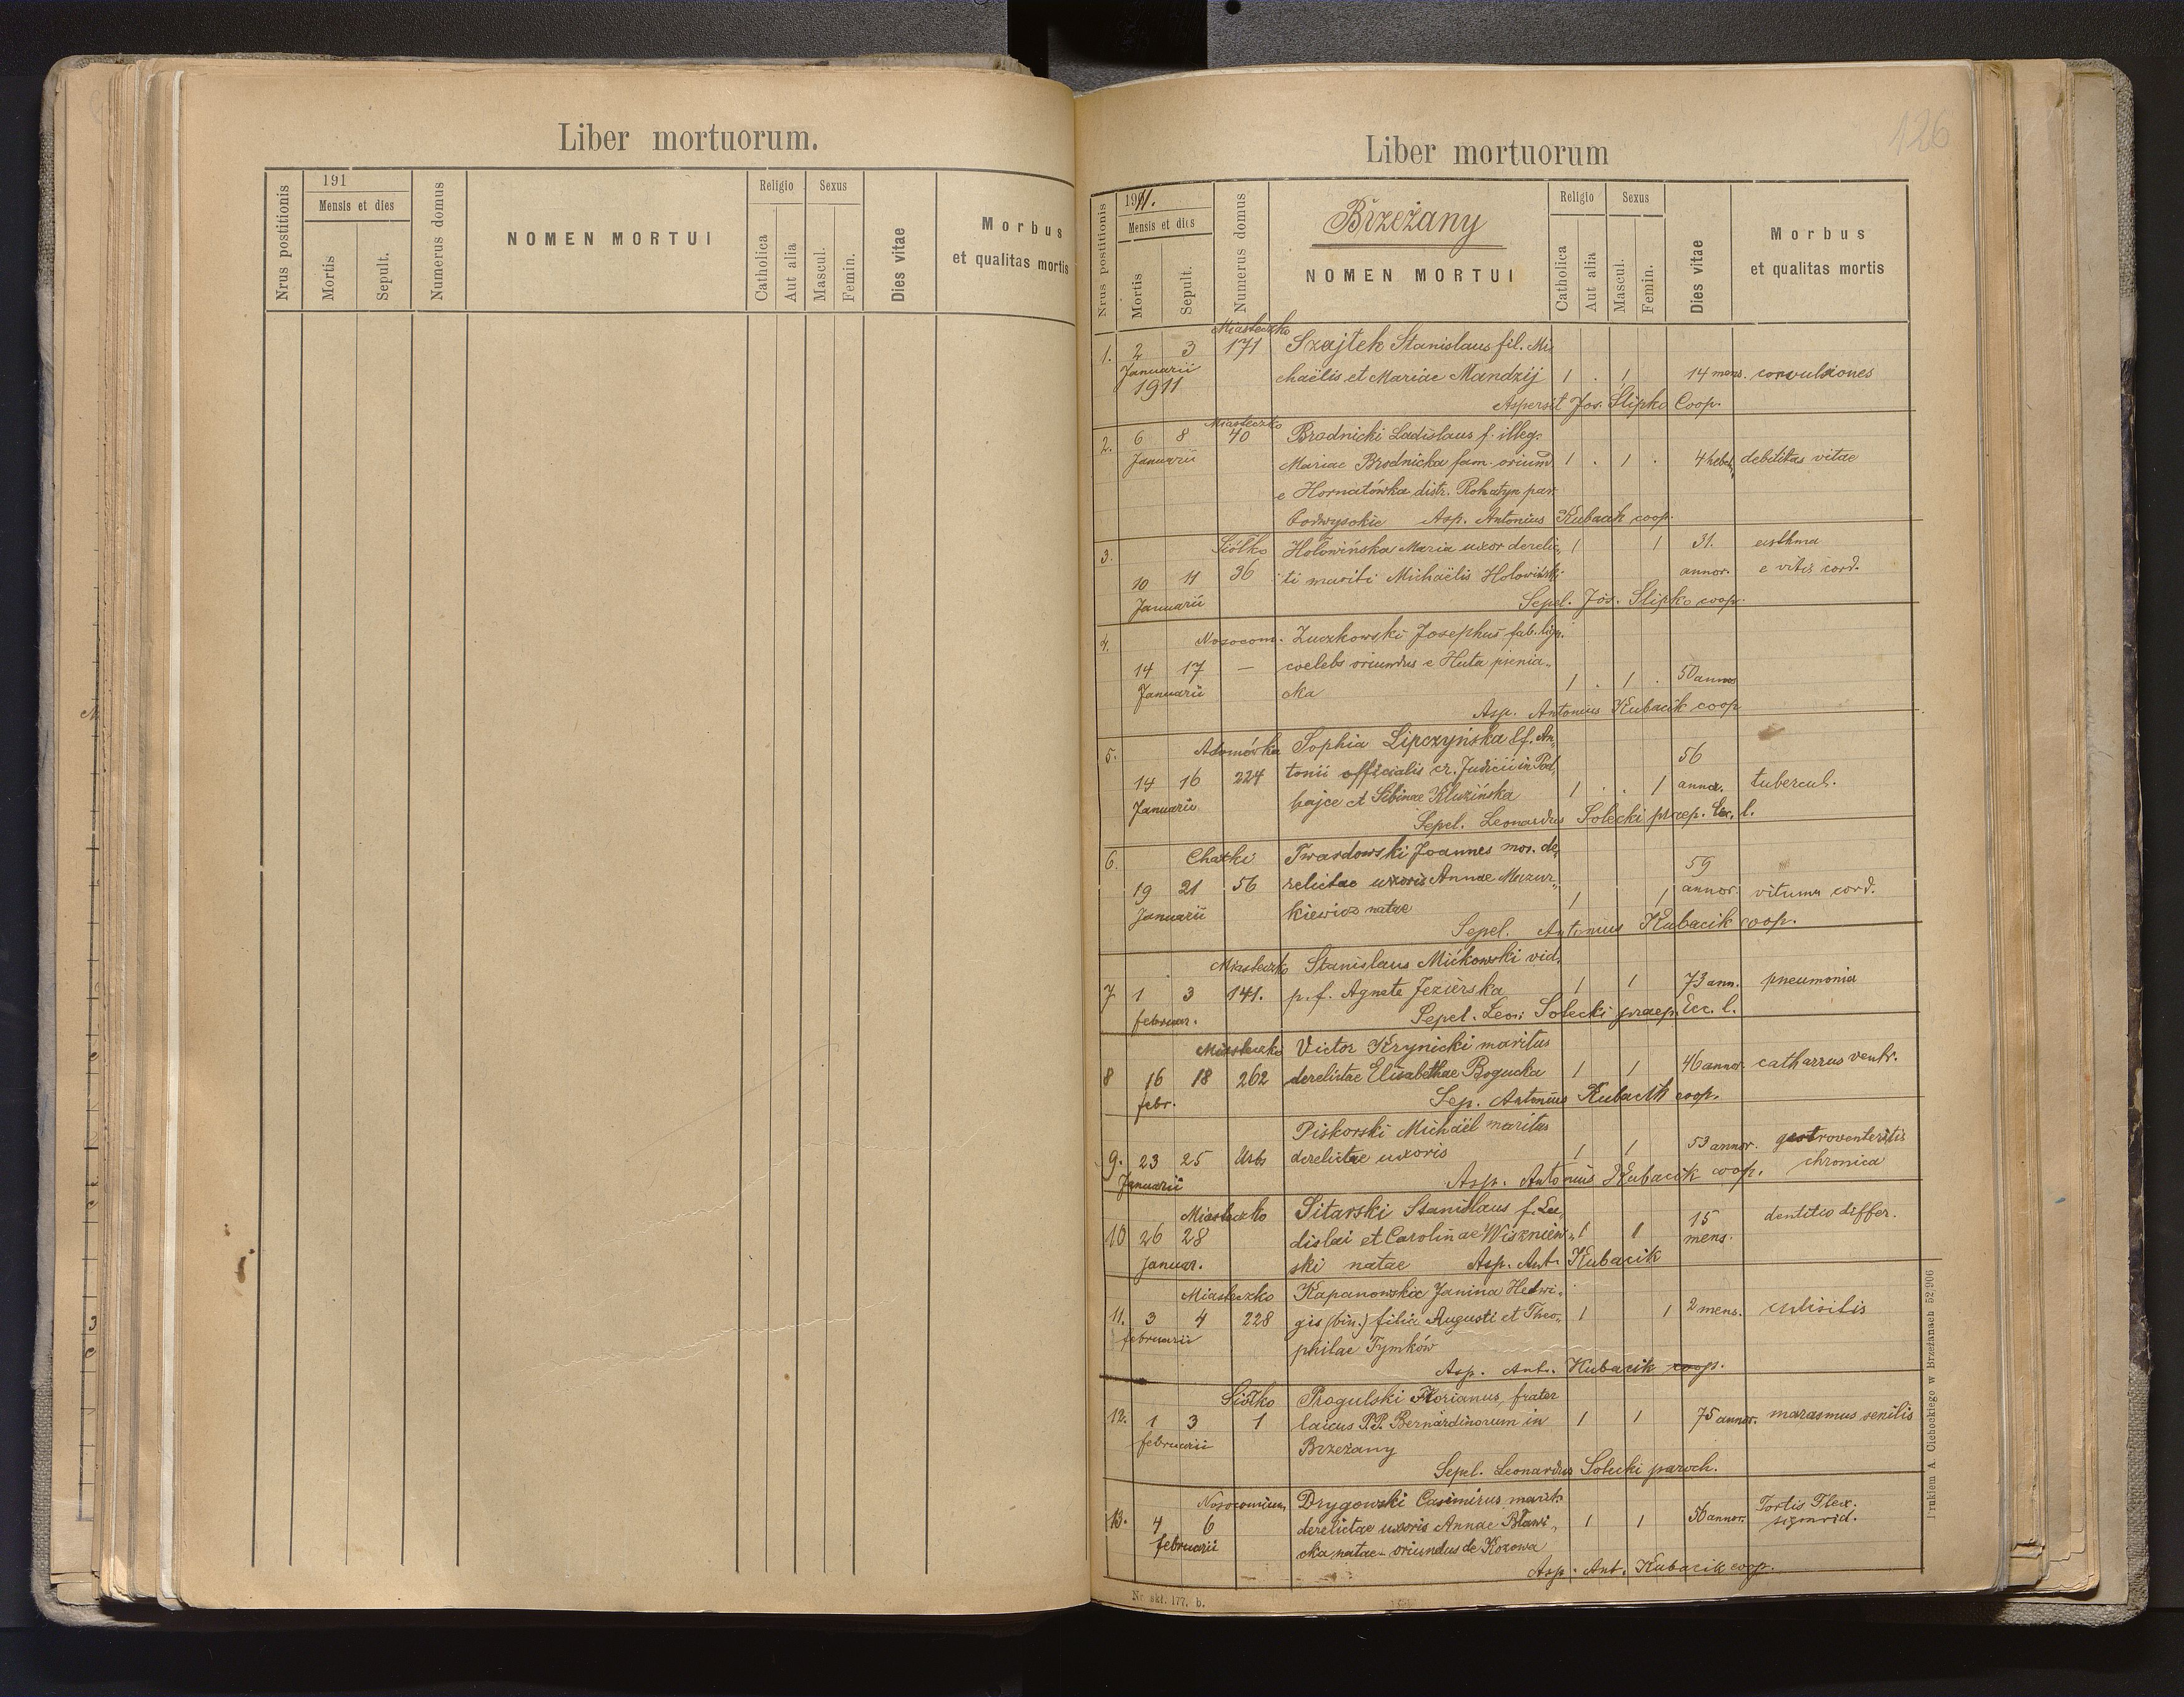 Liber mortuorum.
Nrus postitionis
191
Mensis et dies
Mortis
Sepult.
Numerus domus
NOMEN MORTUI
Religio
Catholica
Aut alia
Sexus
Mascul.
Femin.
Dies vitae
Morbus
et qualitas mortis
126
Liber mortuorum
Nrus postitionis
1911.
Mensis et dies
Mortis
Sepult.
Numerus domus
Brzeżany
NOMEN MORTUI
Religio
Catholica
Aut alia
Sexus
Mascul.
Femin.
Dies vitae
Morbus
et qualitas mortis
Miasteczko
1. 2 3 171 Szajtek Stanislaus fil. Mi
Januarii
1911 chaëlis et Mariae Mandzij 1 . 1 14 mens. convulsiones
Aspersit Jos. Slipko Coop.
Miasteczko
2. 6 8 40 Brodnicki Ladislaus f. illeg.
Januarii Mariae Brodnicka fam. oriund 1 . 1 . 4 hebd. debilitas vitae
e Hornatówka distr. Rohatyn par.
Podwysokie Asp. Antonius Kubacik coop.
3. Siółko Hołowińska Maria uxor derelic 1 1 31. asthma
10 11 36 ti mariti Michaëlis Hołowiński annor. e vitio cord.
Januarii Sepel. Jos. Slipko coop.
4. Nosocom. Zuczkowski Josephus fab. lign.
14 17 — coelebs oriundus e Huta pienia„
Januarii cka 1 . 1 . 50 annor
Asp. Antonius Kubacik coop
5. Adamówka Sophia Lipczyńska f. An„ 56
14 16 224 tonii officialis cr. Judicii in Pod„
Januarii hajce et Sibinae Kluzińska 1 . . 1 annor. tubercul.
Sepel. Leonardus Solecki praep. Ecc. l.
6. Chatki Twardowski Joannes mar. de„ 59
19 21 56 relictae uxoris Annae Mazur„ annor. vitium cord.
Januarii kiewicz natae 1 1
Sepel. Antonius Kubacik coop.
Miasteczko Stanislaus Mićkowski vid.
7 1 3 141. p. f. Agnete Jezierska 1 1 73 ann. pneumonia
februar. Sepel. Leon. Solecki praep. Ecc. l.
Miasteczko Victor Krynicki maritus
8 16 18 262 derelictae Elisabethae Bogucka 1 1 46 annor. catharrus ventr.
febr. Sep. Antonius Kubacik coop.
Piskorski Michaël maritus
9. 23 25 Urbs derelictae uxoris 1 1 53 annor. gastroventeritis
Januarii Asp. Antonius Kubacik coop. chronica
Miasteczko Sitarski Stanislaus f. La„ 15 dentitio differ.
10 26 28 dislai et Carolinae Wiszniew„ 1 1 mens.
Januar. ski natae Asp. Ant. Kubacik
Miasteczko Kapanowska Janina Hedwi„
11. 3 4 228 gis (bin.) filia Augusti et Theo„ 1 1 2 mens.
februarii philae Tymków
Asp. Ant. Kubacik coop.
Siółko Rogulski Florianus, frater
12. 1 3 1 laicus P.P. Bernardinorum in 1 1 75 annor. marasmus senilis
februarii Brzeżany
Sepel. Leonardus Solecki paroch.
Nosocomium Drygowski Casimirus marit. Tortis Flex.
13. 4 6 derelictae uxoris Annae Bławi„ 1 1 56 annor. sigmoid.
februarii cka natae - oriundus de Kozowa
Asp. Ant. Kubacik coop.
Nr. skł. 177. b.
Drukiem A. Cichockiego w Brzeżanach 52 906